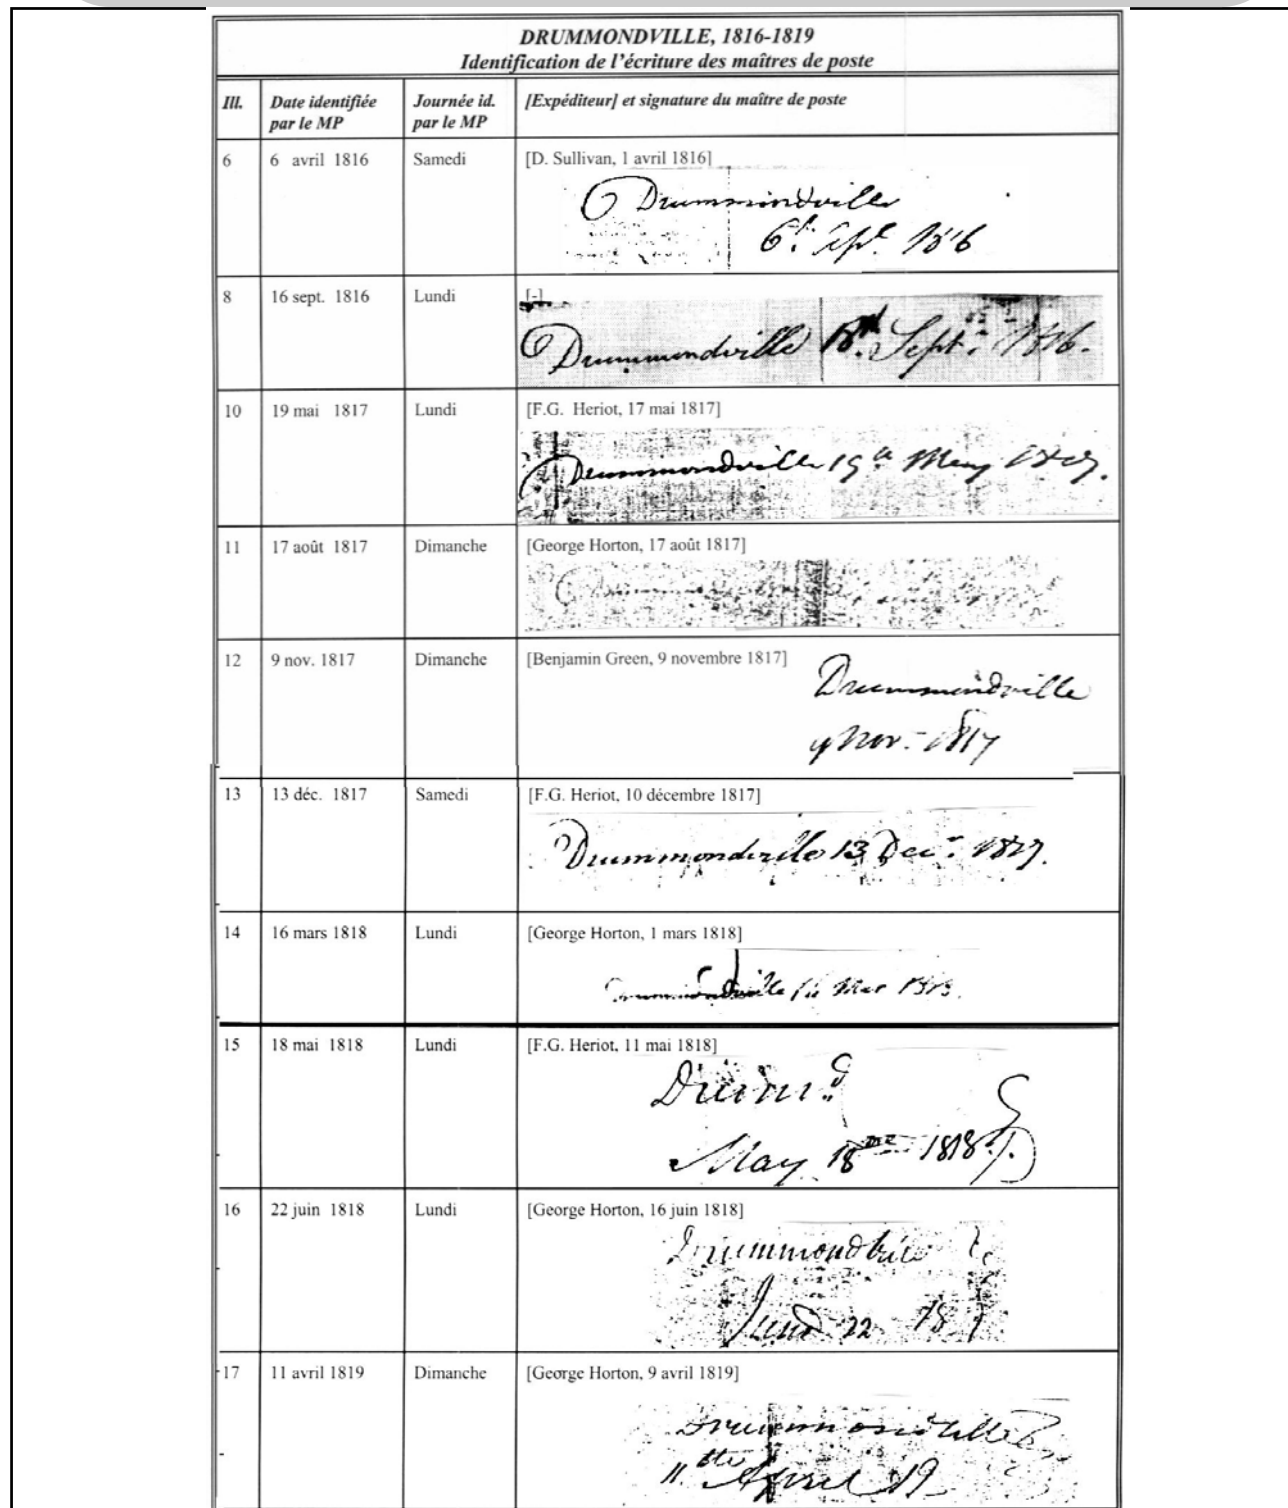 DRUMMONDVILLE, 1816-1819
Identification de l'écriture des maîtres de poste
Ill. Date identifiée par le MP Journée id. par le MP [Expéditeur] et signature du maître de poste
6 6 avril 1816 Samedi [D. Sullivan, 1 avril 1816]
Drummondville
6th Apl. 1816
8 16 sept. 1816 Lundi [-]
Drummondville Sept. 1816.
10 19 mai 1817 Lundi [F.G. Heriot, 17 mai 1817]
Drummondville 19th May 1817.
11 17 août 1817 Dimanche [George Horton, 17 août 1817]
12 9 nov. 1817 Dimanche [Benjamin Green, 9 novembre 1817]
Drummondville
9 Nov. 1817
13 13 déc. 1817 Samedi [F.G. Heriot, 10 décembre 1817]
Drummondville 13 Dec. 1817.
14 16 mars 1818 Lundi [George Horton, 1 mars 1818]
Drummondville Mar 1818.
15 18 mai 1818 Lundi [F.G. Heriot, 11 mai 1818]
Drum.d
May 18me 1818
16 22 juin 1818 Lundi [George Horton, 16 juin 1818]
Drummondville
June 22 181
17 11 avril 1819 Dimanche [George Horton, 9 avril 1819]
Drummondville
11 April 19